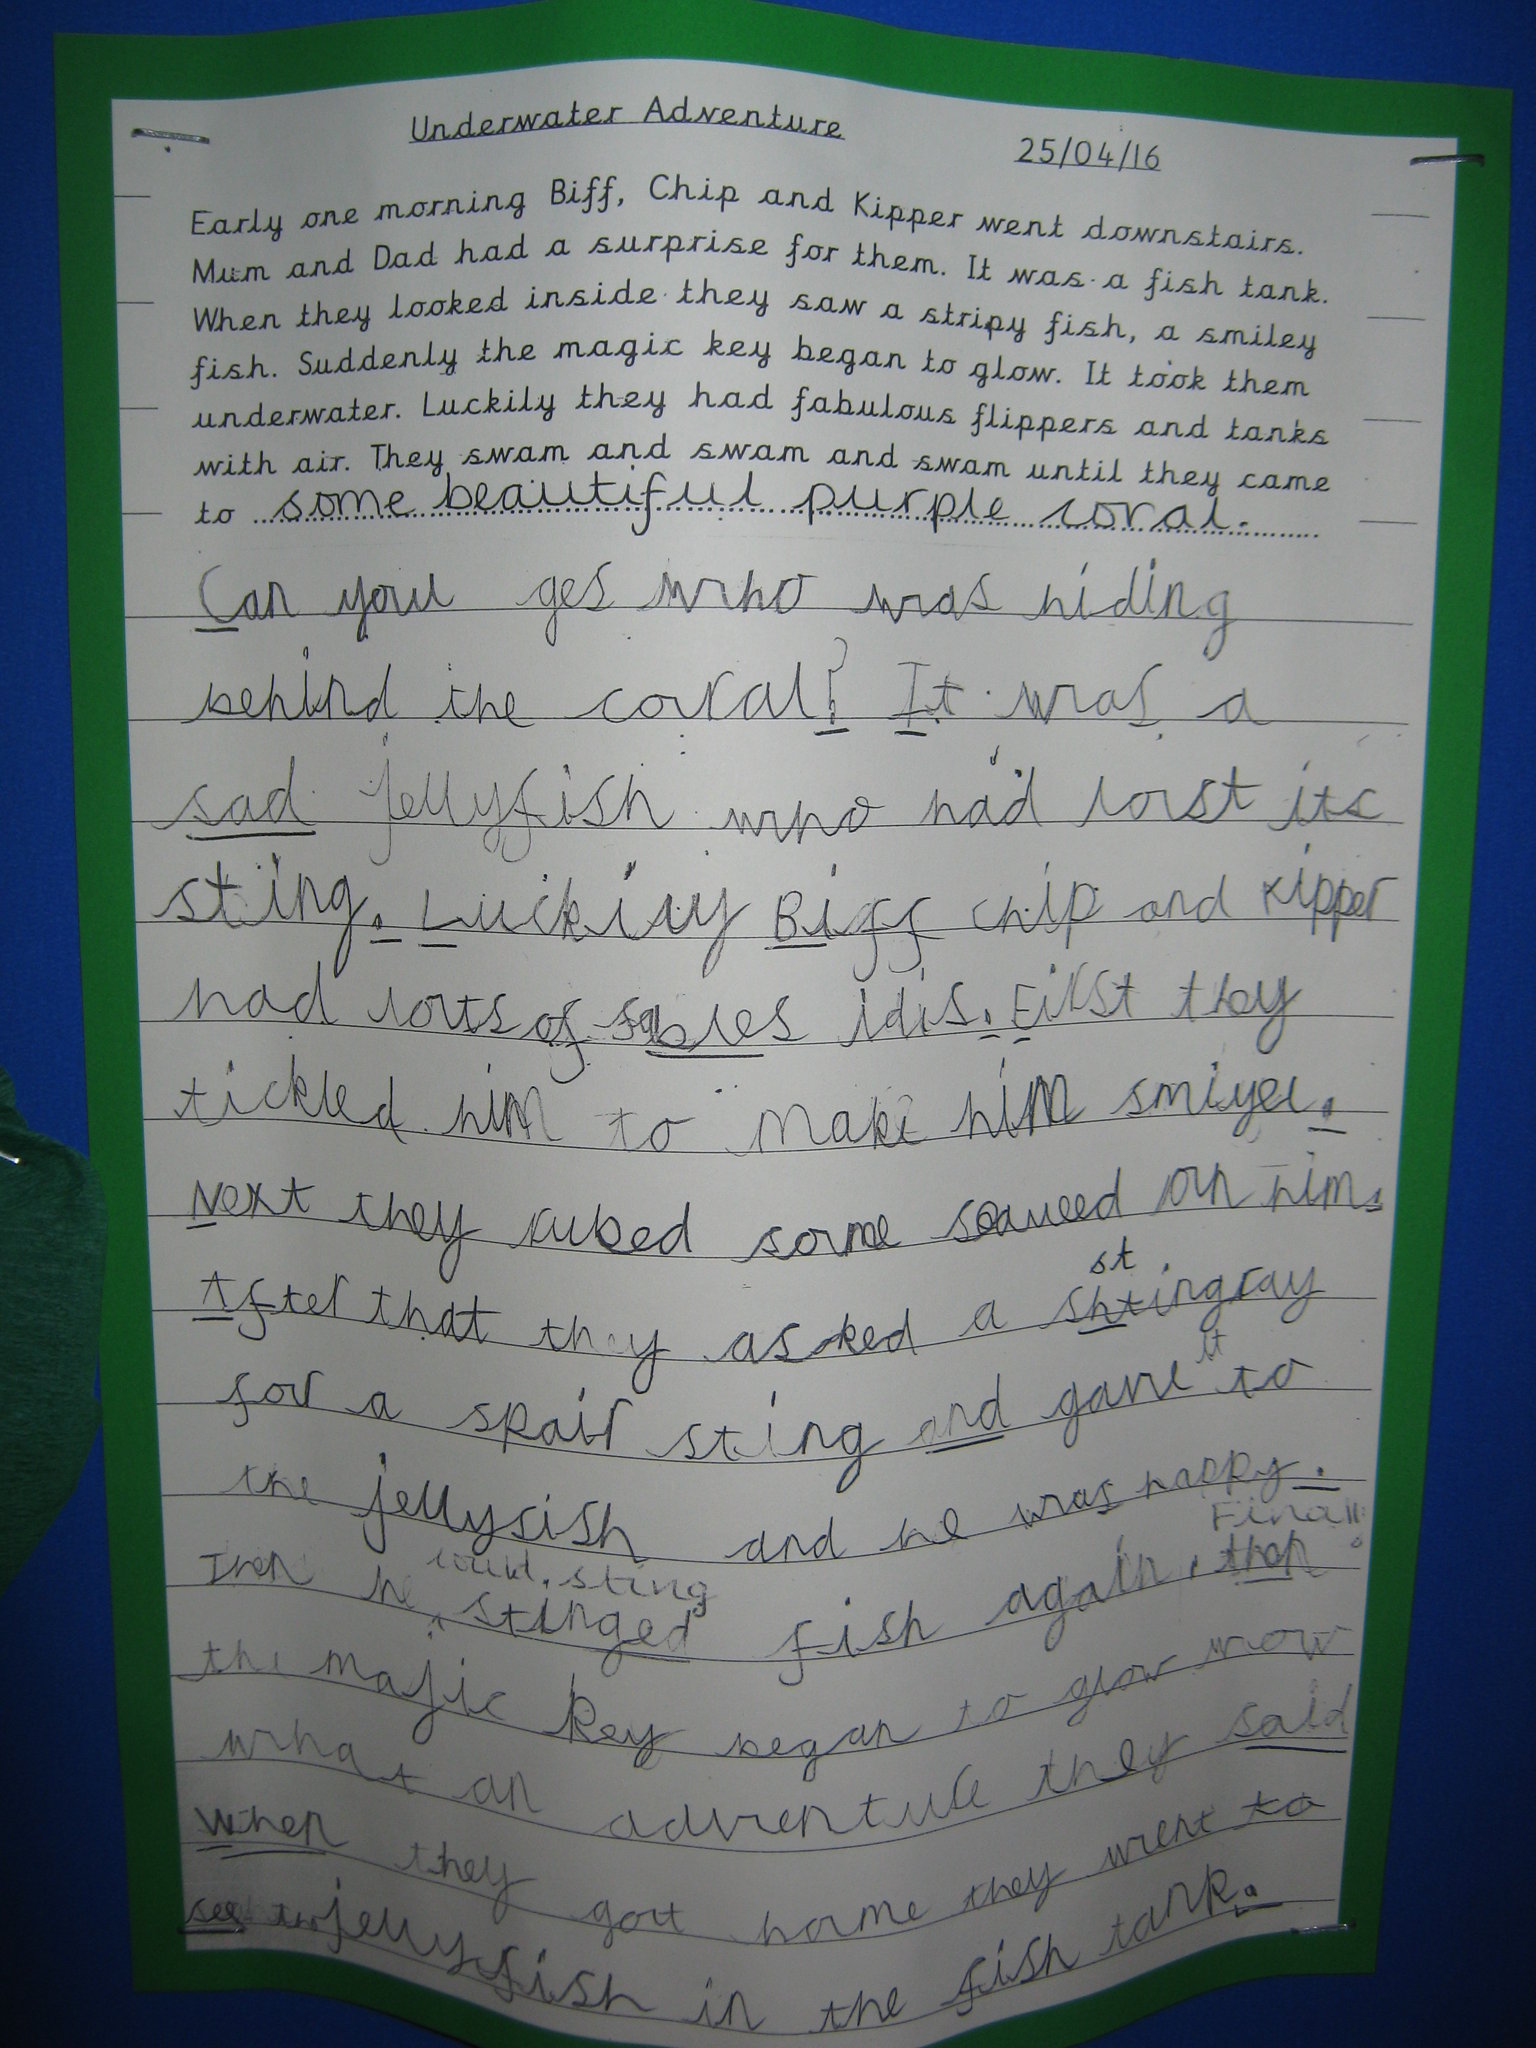 Underwater Adventure
25/04/16
Early one morning Biff, Chip and Kipper went downstairs.
Mum and Dad had a surprise for them. It was a fish tank.
When they looked inside they saw a stripy fish, a smiley
fish. Suddenly the magic key began to glow. It took them
underwater. Luckily they had fabulous flippers and tanks
with air. They swam and swam and swam until they came
to some beautiful purple coral.
Can you ges who was hiding
behind the coral? It was a
sad jellyfish who had lost its
sting. Luckily Biff chip and Kipper
had lots of idis. First they
tickled him to make him smiyel.
Next they rubed some seaweed on him.
st
After that they asked a shtingray
it
for a spair sting and gave to
the jellyfish and he was happy.
Finall
could sting
Then he stinged fish again. then
the majic key began to glow wow
what an adventure they said
When they got home they went to
see the jellyfish in the fish tank.